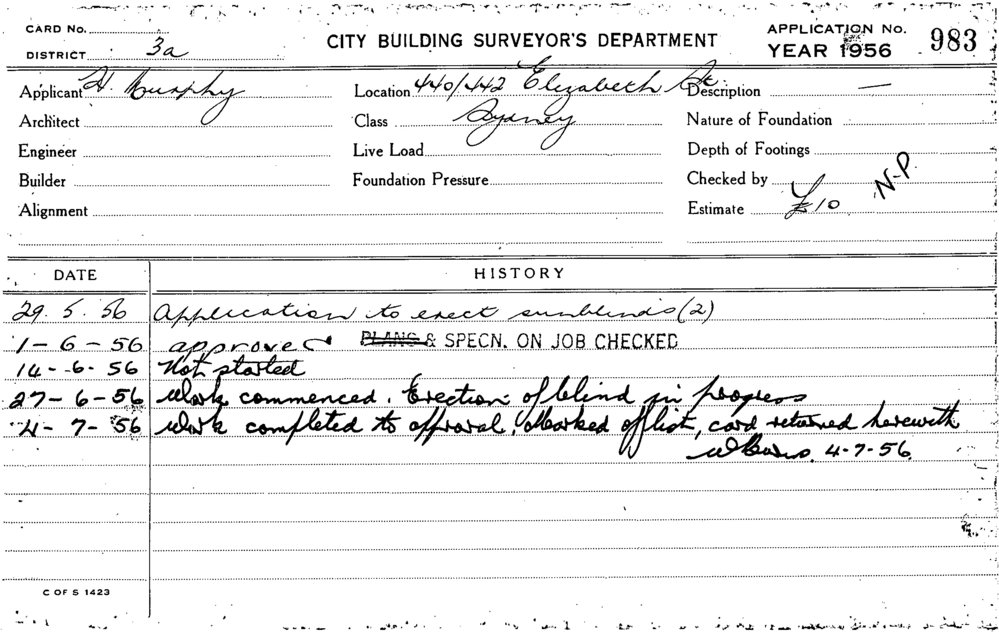 CARD No.
DISTRICT 3a
CITY BUILDING SURVEYOR'S DEPARTMENT
APPLICATION No. 983
YEAR 1956
Applicant H. Murphy
Location 440/442 Elizabeth St.
Description —
Architect
Class Sydney
Nature of Foundation
Engineer
Live Load
Depth of Footings
Builder
Foundation Pressure
Checked by
N-P
Alignment
Estimate £10
DATE HISTORY
29. 5. 56 Application to erect sunblinds (2)
1-6-56 approved PLANS & SPECN. ON JOB CHECKED
14-6-56 Not started
27-6-56 Work commenced. Erection of blind in progress
4-7-56 Work completed to approval. Marked off list, card returned herewith
4-7-56
C OF S 1423